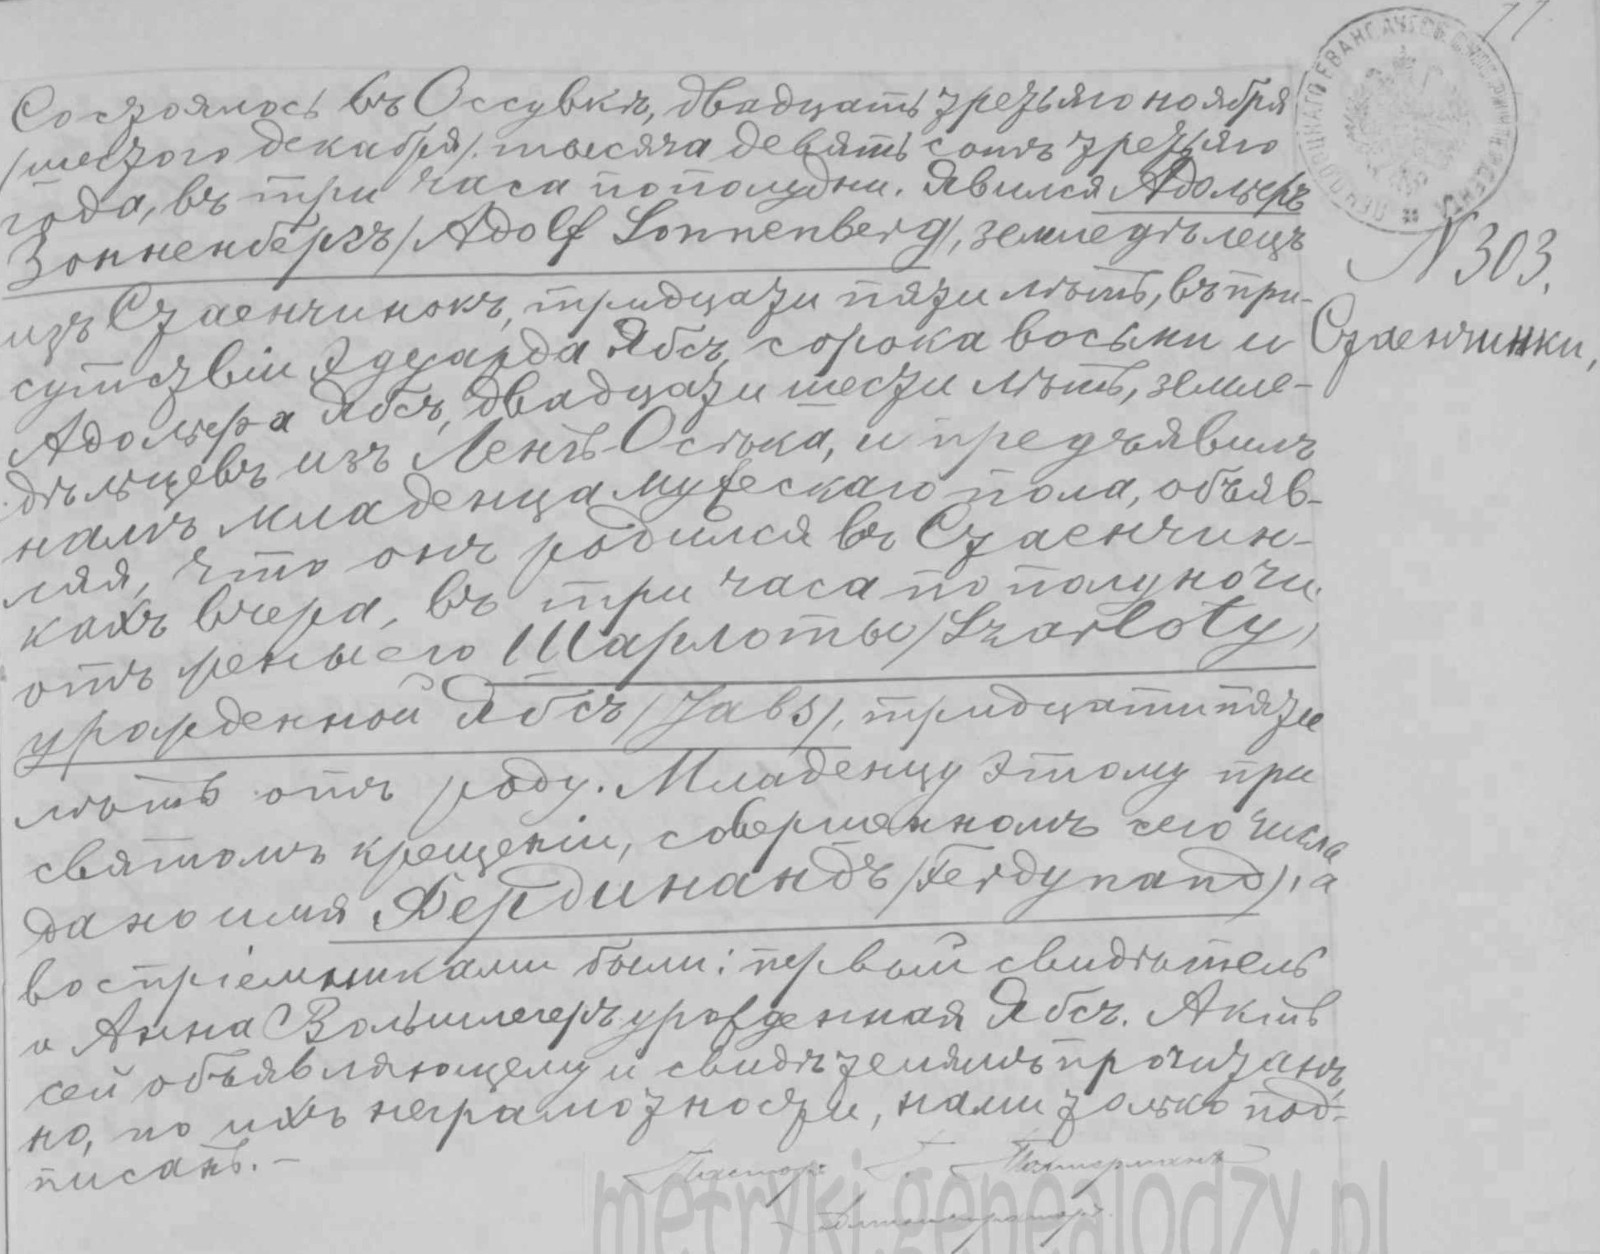 77
Состоялось въ Оссувкѣ, двадцать третьяго ноября
/шестого декабря/ тысяча девятьсотъ третьяго
года, въ три часа пополудни. Явился Адольфъ
Зонненбергъ /Adolf Sonnenberg/, земледѣлецъ
изъ Стаенчинокъ, тридцати пяти лѣтъ, въ при-
сутствіи Эдуарда Ябсъ, сорока восьми и
Адольфа Ябсъ, двадцати шести лѣтъ, земле-
дѣльцевъ изъ Ленъ-Остька, и предъявилъ
намъ младенца мужескаго пола, объяв-
ляя, что онъ родился въ Стаенчин-
кахъ вчера, въ три часа по полуночи,
отъ жены его Шарлоты /Szarloty/
урожденной Ябсъ /Jabs/, тридцати пяти
лѣтъ отъ роду. Младенцу этому при
святомъ крещеніи, совершенномъ сего числа
дано имя Фердинандъ /Ferdynand/, а
воспріемниками были: первый свидѣтель
и Анна Вольшлегеръ урожденная Ябсъ. Актъ
сей объявляющему и свидѣтелямъ прочитанъ,
но, по ихъ неграмотности, нами только под-
писанъ. –
Пасторъ
N 303.
Стаенчинки,
metryki.genealodzy.pl